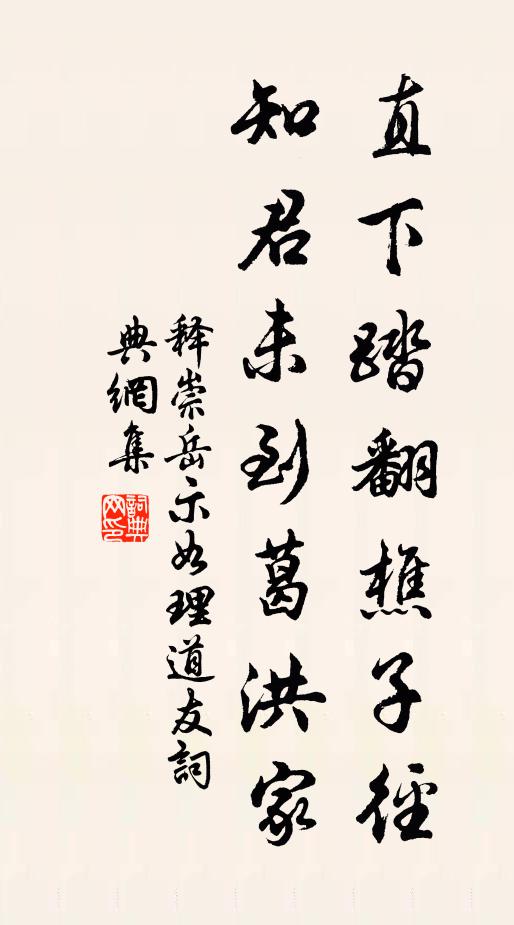 直下踏翻樵子徑
知君未到葛洪家
释崇岳示如理道友詞
典網集
詞典网印